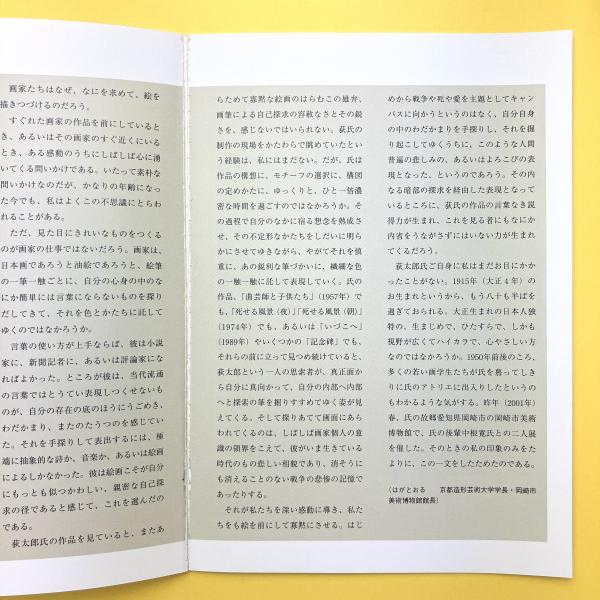 画家たちはなぜ、なにを求めて、絵を
描きつづけるのだろう。
すぐれた画家の作品を前にしていると
き、あるいはその画家のすぐ近くにいる
とき、ある感動のうちにしばしば心に湧
いてくる問いかけである。いたって素朴な
問いかけなのだが、かなりの年齢になっ
た今でも、私はよくこの不思議にとらわ
れることがある。
ただ、見た目にきれいなものをつくる
のが画家の仕事ではないだろう。画家は、
日本画であろうと油絵であろうと、絵筆
の一筆一触ごとに、自分の心身の中のな
にか簡単には言葉にならないものを探り
だしてきて、それを色とかたちに託して
ゆくのではなかろうか。
言葉の使い方が上手ならば、彼は小説
家に、新聞記者に、あるいは評論家にな
ればよかった。ところが彼は、当代流通
の言葉ではとうてい表現しつくせないも
のが、自分の存在の底のほうにうごめき、
わだかまり、またのたうつのを感じてい
た。それを手探りして表出するには、極
端に抽象的な詩か、音楽か、あるいは絵画
によるしかなかった。彼は絵画こそが自分
にもっとも似つかわしい、親密な自己探
求の径であると感じて、これを選んだの
である。
荻太郎氏の作品を見ていると、またあ
らためて寡黙な絵画のはらむこの雄弁、
画筆による自己探求の容赦なさとその鋭
さを、感じないではいられない。荻氏の
制作の現場をかたわらで眺めていたとい
う経験は、私にはまだない。だが、氏は
作品の構想に、モチーフの選択に、構図
の定めかたに、ゆっくりと、ひと一倍濃
密な時間を過ごすのではなかろうか。そ
の過程で自分のなかに宿る想念を熟成さ
せ、その不定形なかたちをしだいに明ら
かにさせてゆきながら、やがてそれを慎
重に、あの鋭利な筆づかいに、繊細な色
の一触一触に託して表現していく。氏の
作品、「曲芸師と子供たち」（1957年）で
も、「死せる風景（夜）」「死せる風景（朝）」
（1974年）でも、あるいは「いづこへ」
（1989年）やいくつかの「記念碑」でも、
それらの前に立って見つめ続けていると、
荻太郎という一人の思索者が、真正面か
ら自分に真向かって、自分の内部へ内部
へと探索の筆を掘りすすめてゆく姿が見
えてくる。そして探りあてて画面にあら
われてくるのは、しばしば画家個人の意
識の領界をこえて、彼がいま生きている
時代のもの悲しい相貌であり、消そうに
も消えることのない戦争の悲惨の記憶で
あったりする。
それが私たちを深い感動に導き、私た
ちをも絵を前にして寡黙にさせる。はじ
めから戦争や死や愛を主題としてキャン
バスに向かうというのはなく、自分自身
の中のわだかまりを手探りし、それを掘
り起こしてゆくうちに、このような人間
普遍の悲しみの、あるいはよろこびの表
現となった、というのであろう。その内
なる暗部の探求を経由した表現となって
いるところに、荻氏の作品の言葉なき説
得力が生まれ、これを見る者にもなにか
内省をうながさずにはいない力が生まれ
てくるだろう。
荻太郎氏ご自身に私はまだお目にかか
ったことがない。1915年（大正4年）の
お生まれというから、もう八十も半ばを
過ぎておられる。大正生まれの日本人独
特の、生まじめで、ひたすらで、しかも
視野が広くてハイカラで、心やさしい方
なのではなかろうか。1950年前後のころ、
多くの若い画学生たちが氏を慕ってしき
りに氏のアトリエに出入りしたというの
もわかるような気がする。昨年（2001年）
春、氏の故郷愛知県岡崎市の岡崎市美術
博物館で、氏の後輩中根寛氏との二人展
を催した。そのときの私の印象のみをた
よりに、この一文をしたためたのである。
（はがとおる　京都造形芸術大学学長・岡崎市
美術博物館館長）